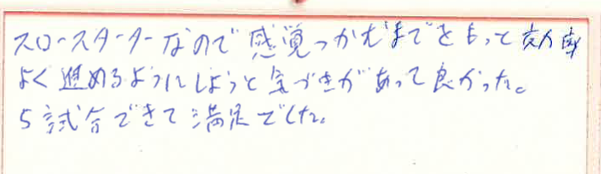 スロースターターなので感覚つかむまでをもっと効率
よく進めるようにしようと気づきがあって良かった。
5試合できて満足でした。